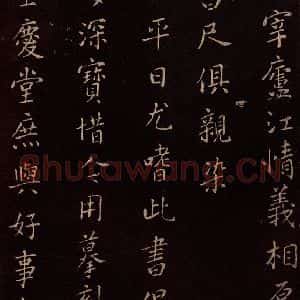 宰廬江情義相
尺俱親染
平日尤嗜此書
深寶惜今用摹刻
慶堂庶與好事
Shufawang.CN